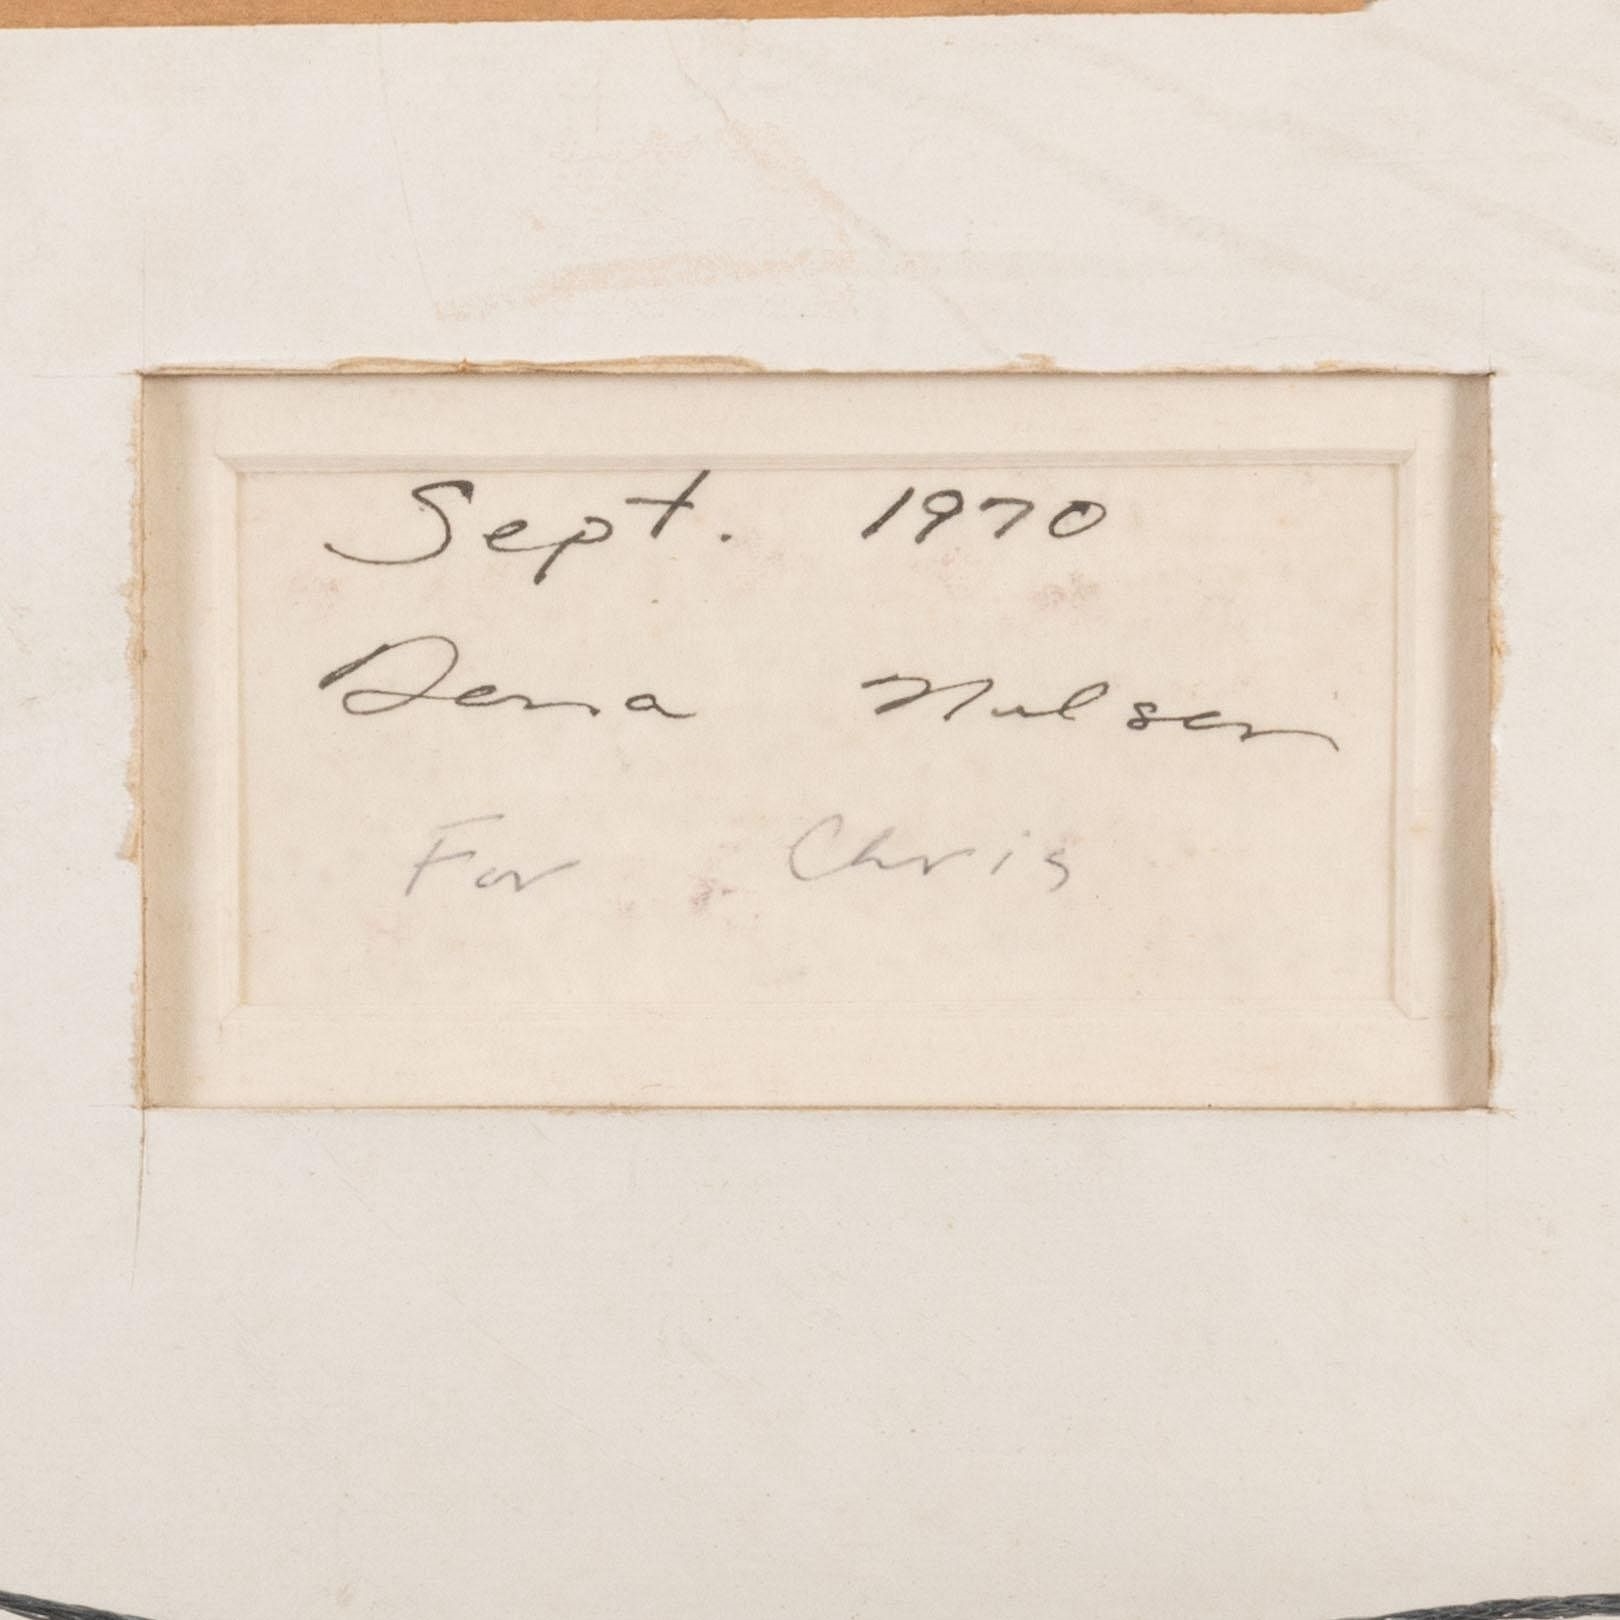 Sept. 1970
Dena
For Chris